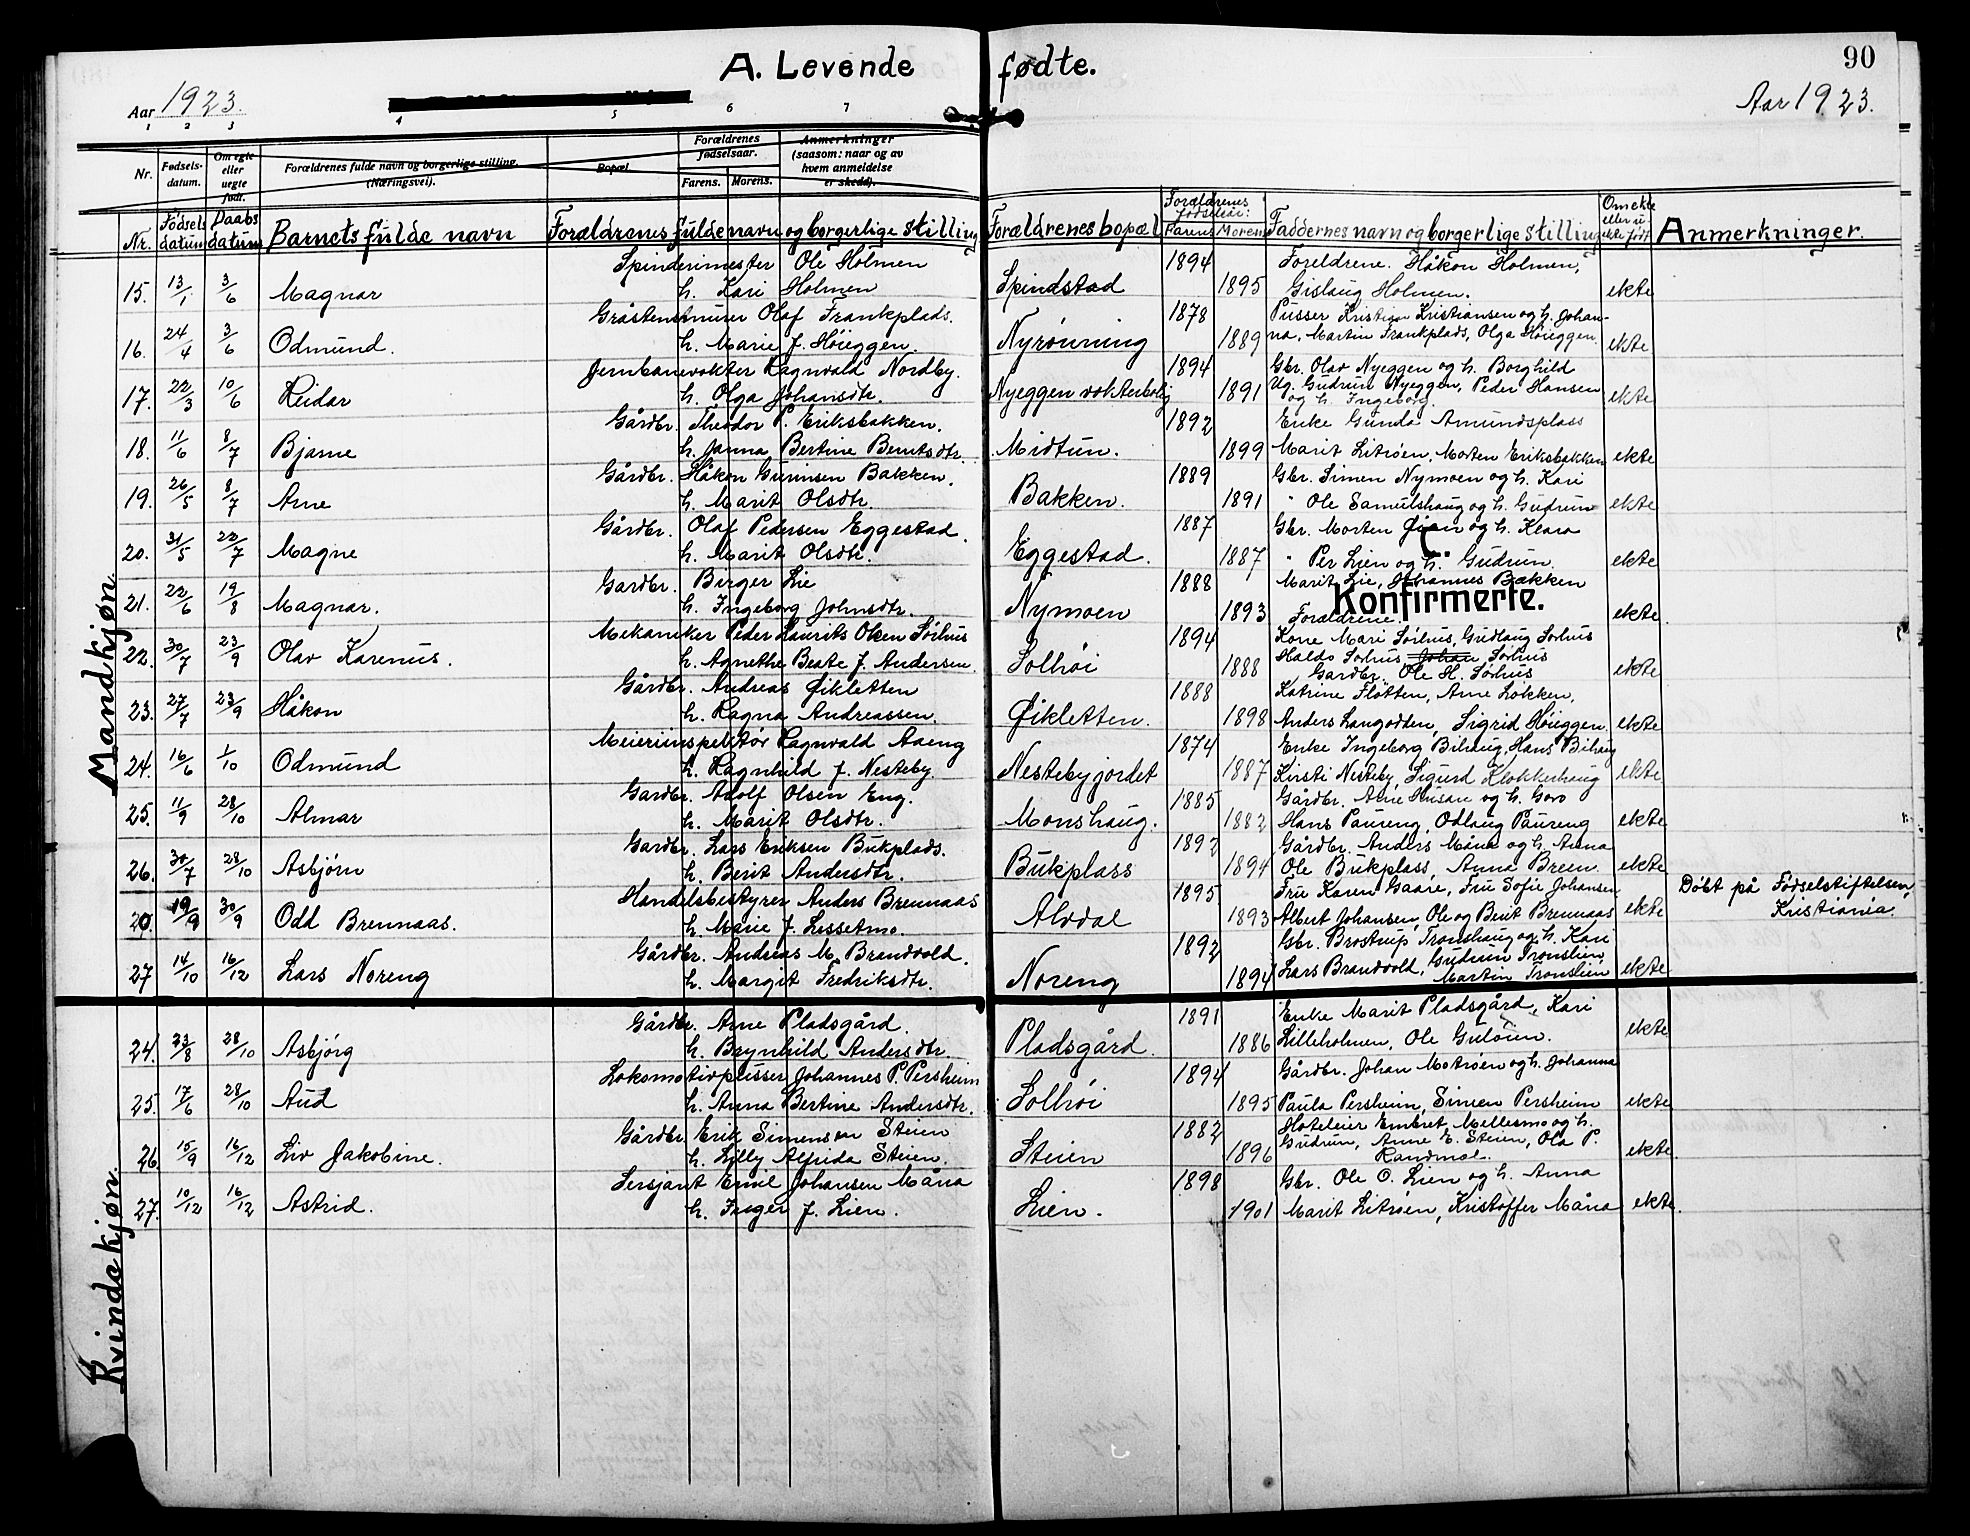 A. Levende fødte.
90
Aar 1923.
Aar 1923.
1 2 3 4 5 6 7
Nr. Fødsels-datum. Om egte eller uegte født. Forældrenes fulde navn og borgerlige stilling. (Næringsvei). Bopæl. Forældrenes fødselsaar. Farens. Morens. Anmerkninger (saasom: naar og av hvem anmeldelse er skedd).
Nr. Fødsels datum Daabs datum Barnets fulde navn Forældrenes fulde navn og borgerlige stilling Forældrenes bopæl Forældrenes fødselsår: Farens Morens Faddernes navn og borgerlige stilling Om ekte eller u ekte født Anmerkninger.
Mandkjøn.
Spinderimester Ole Holmen 1894 Foreldrene. Håkon Holmen,
15. 13/1 3/6 Magnar h. Kari Holmen Spindstad 1895 Gislaug Holmen. ekte
Gråstensmurer Olaf Frankplads. 1878 Pusser Kristian Kristiansen og h. Johan-
16. 24/4 3/6 Odmund. h. Marie f. Høieggen. Nyrønning 1889 na, Martin Frankplads, Olga Høieggen. ekte
Jernbanevokter Ragnvald Nordby. 1894 Gbr. Olav Nyeggen og h. Borghild
17. 22/3 10/6 Reidar h. Olga Johansdtr. Nyeggen vokterbolig 1891 Ug. Gudrun Nyeggen, Peder Hansen
og h. Ingeborg. ekte
Gårdbr. Theodor P. Eriksbakken. 1892 Enke Gunda Amundsplass
18. 11/6 8/7 Bjarne h. Janna Bertine Berntsdtr. Midtun. 1899 Marit Litrøen, Morten Eriksbakken ekte
Gårdbr. Håkon Bakken. 1889 Gbr. Simen Nymoen og h. Kari
19. 26/5 8/7 Arne h. Marit Olsdtr. Bakken. 1891 " Ole Samuelshaug og h. Gudrun ekte
Gårdbr. Olaf Pedersen Eggestad. 1887 Gbr. Morten Øien og h. Klara
20. 31/5 22/7 Magne h. Marit Olsdtr. Eggestad. 1887 " Per Lien og h. Gudrun. ekte
C.
Gardbr. Birger Lie 1888 Marit Lie, Johannes Bækken
Konfirmerte.
21. 22/6 19/8 Magnar. h. Ingeborg Johnsdtr. Nymoen 1893 Forældrene. ekte
Mekaniker Peder Laurits Olsen Sørhus 1894 Kone Mari Sørhus, Gudlaug Sørhus
22. 30/7 23/9 Olav Karenus. h. Agnethe Beate f. Andersen. Solhøi 1888 Haldo Sørhus Johan Sørhus
Gardbr. Ole H. Sørhus ekte
Gårdbr. Andreas Øikletten 1888 Katrine Fløtten, Arne Løkken,
23. 27/7 23/9 Håkon h. Ragna Andreassen. Øikletten. 1898 Anders Langodden, Sigrid Høieggen. ekte
Meieriinspektør Ragnvald Aaeng 1874 Enke Ingeborg Bihaug, Hans Bihaug
24. 16/6 1/10 Odmund h. Ragnhild f. Nesteby Nestebyjordet 1887 Kirsti Nesteby, Sigurd Klokkerhaug ekte
Gardbr. Adolf Olsen Eng. 1885 Gårdbr. Arne Husan og h. Goro
25. 11/9 28/10 Almar h. Marit Olsdtr. Monshaug. 1882 Hans Paureng, Odlaug Paureng ekte
Gardbr. Lars Eriksen Bukplads. 1892 Gårdbr. Anders Måna og h. Anna
26. 30/7 28/10 Asbjørn h. Berit Andersdtr. Bukplass 1894 Ole Bukplass, Anna Breen. ekte
Handelsbestyrer Anders Brennaas 1895 Fru Karen Gaare, Fru Sofie Johansen Døbt på Fødselstiftelsen,
20. 19/9 30/9 Odd Brennaas. h. Marie f. Lessetmo. Alvdal 1893 Albert Johansen, Ole og Berit Brennaas ekte Kristiania.
Gårdbr. Andreas M. Brandvold. 1892 Gbr. Brostrup Tronshaug og h. Kari
27 14/10 16/12 Lars Noreng h. Margit Fredriksdtr. Noreng 1894 Lars Brandvold, Gudrun Tronslien
Martin Tronslien ekte
Kvindekjøn.
Gårdbr. Arne Pladsgård. 1891 Enke Marit Pladsgård, Kari
24. 23/8 28/10 Asbjørg h. Brynhild Andersdtr. Pladsgård. 1886 Lilleholmen, Ole Guløien. ekte
Lokomotivpusser Johannes P. Persheim 1894 Gårdbr. Johan Motrøen og h. Johanna
25. 17/6 28/10 Aud h. Anna Bertine Andersdtr. Solhøi 1895 Paula Persheim, Simen Persheim ekte
Gårdbr Erik Simensen Steien 1882 Hoteleier Embret Mellesmo og h.
26. 15/9 16/12 Liv Jakobine. h. Lilly Alfrida Steien. Steien 1896 Gudrun, Anne E. Steien, Ola P.
Randmæl. ekte
Sersjant Emil Johansen Måna 1898 Gbr. Ole O. Lien og h. Anna
27. 10/12 16/12 Astrid. h. Inger f. Lien. Lien. 1901 Marit Litrøen, Kristoffer Måna ekte.